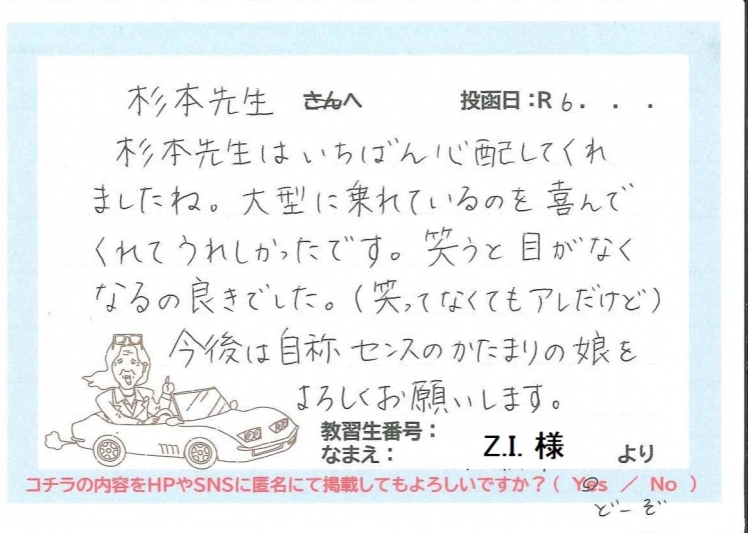 杉本先生 さんへ 投函日：R 6 . . .
杉本先生はいちばん心配してくれ
ましたね。大型に乗れているのを喜んで
くれてうれしかったです。笑うと目がなく
なるの良きでした。（笑ってなくてもアレだけど）
今後は自称センスのかたまりの娘を
よろしくお願いします。
教習生番号：
なまえ： Z.I. 様 より
コチラの内容をHPやSNSに匿名にて掲載してもよろしいですか？（ Yes ／ No ）
どーぞ